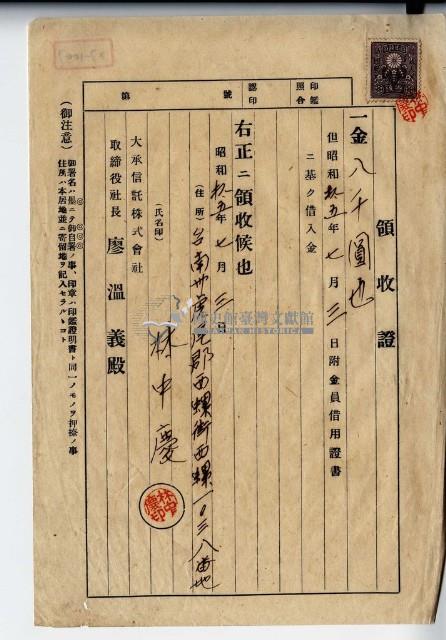 領收證
一金八千圓也
但昭和拾五年七月三日附金員借用證書
ニ基ク借入金
印鑑照合
認印
第 號
右正ニ領收候也
昭和拾五年七月三日
(住所)台南州虎尾郡西螺街西螺一〇三八番地
(氏名印)林中慶
大承信託株式會社
取締役社長 廖溫義殿
(御注意)
御署名ハ墨ニテ御自署ノ事、印章ハ印鑑證明書ト同一ノモノヲ押捺ノ事
住所ハ本居地並ニ寄留地ヲ記入セラルベキコト
國史館臺灣文獻館
TAIWAN HISTORICA